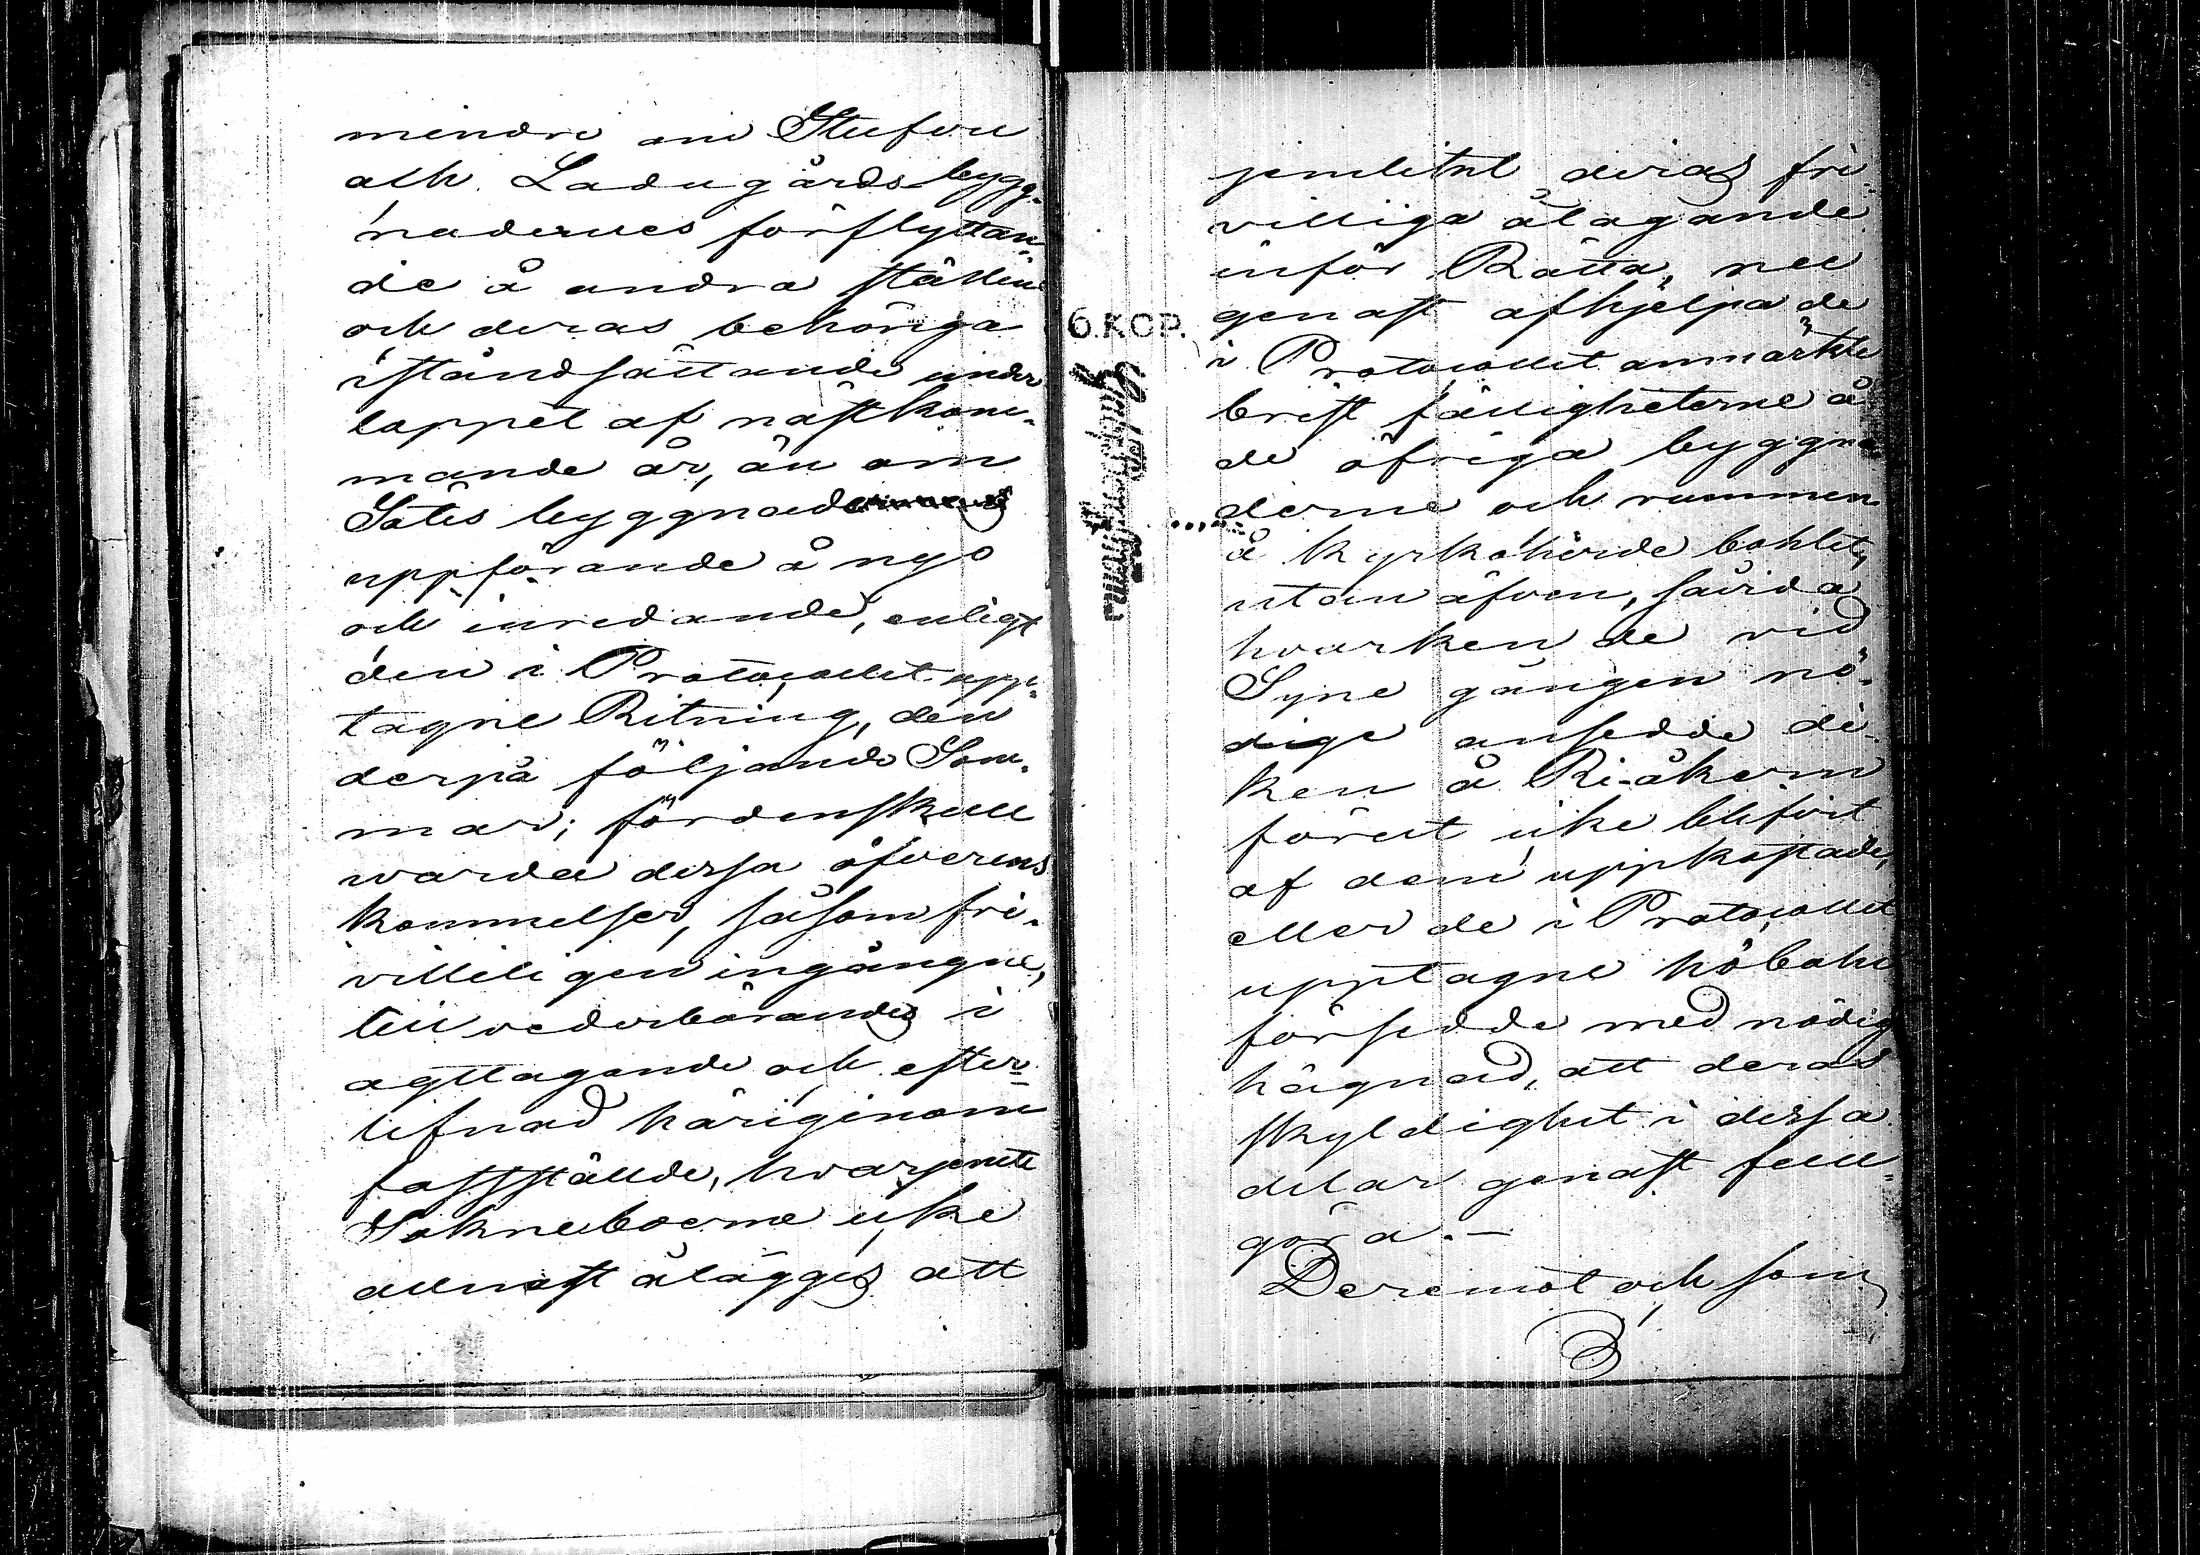 mindre om Stufvu
och Ladugårds bygg-
nadernes förflyttan-
de å andra ställen
och deras behöriga
iståndsättande under
loppet af nästkom-
mande år, än om
Sätes byggnadernes
uppförande å nyo
och inredande, enligt
den i Protocollet upp-
tagne Ritning, den
derpå följande Som-
mar; fördenskull
warda dessa öfverens
kommelser, såsom fri-
villeligen ingångne,
till vederbörandes i
agttagande och efter-
lefnad härigenom
fastställde, hvarjemte
Sokneboerne icke
allenast ålägges att
jemlikt deras fri-
villiga åtagande
inför Rätta, nu
genast afhjelpa de
i Protocollet anmärkte
brist fälligheterne å
de öfriga byggna
derne och rummen
å kyrkoherde bohlet,
utan äfven, såvida
hvarken de vid
Syne gången nö-
dige ansedde di-
ken å Ri-åkern
förut icke blifvit
af dem uppkastade,
eller de i Protocollet
upptagne höbohl
försedde med nödig
hägnad, att deras
skyldighet i dessa
delar genast full-
göra.-
Deremot och som
6.KOP.